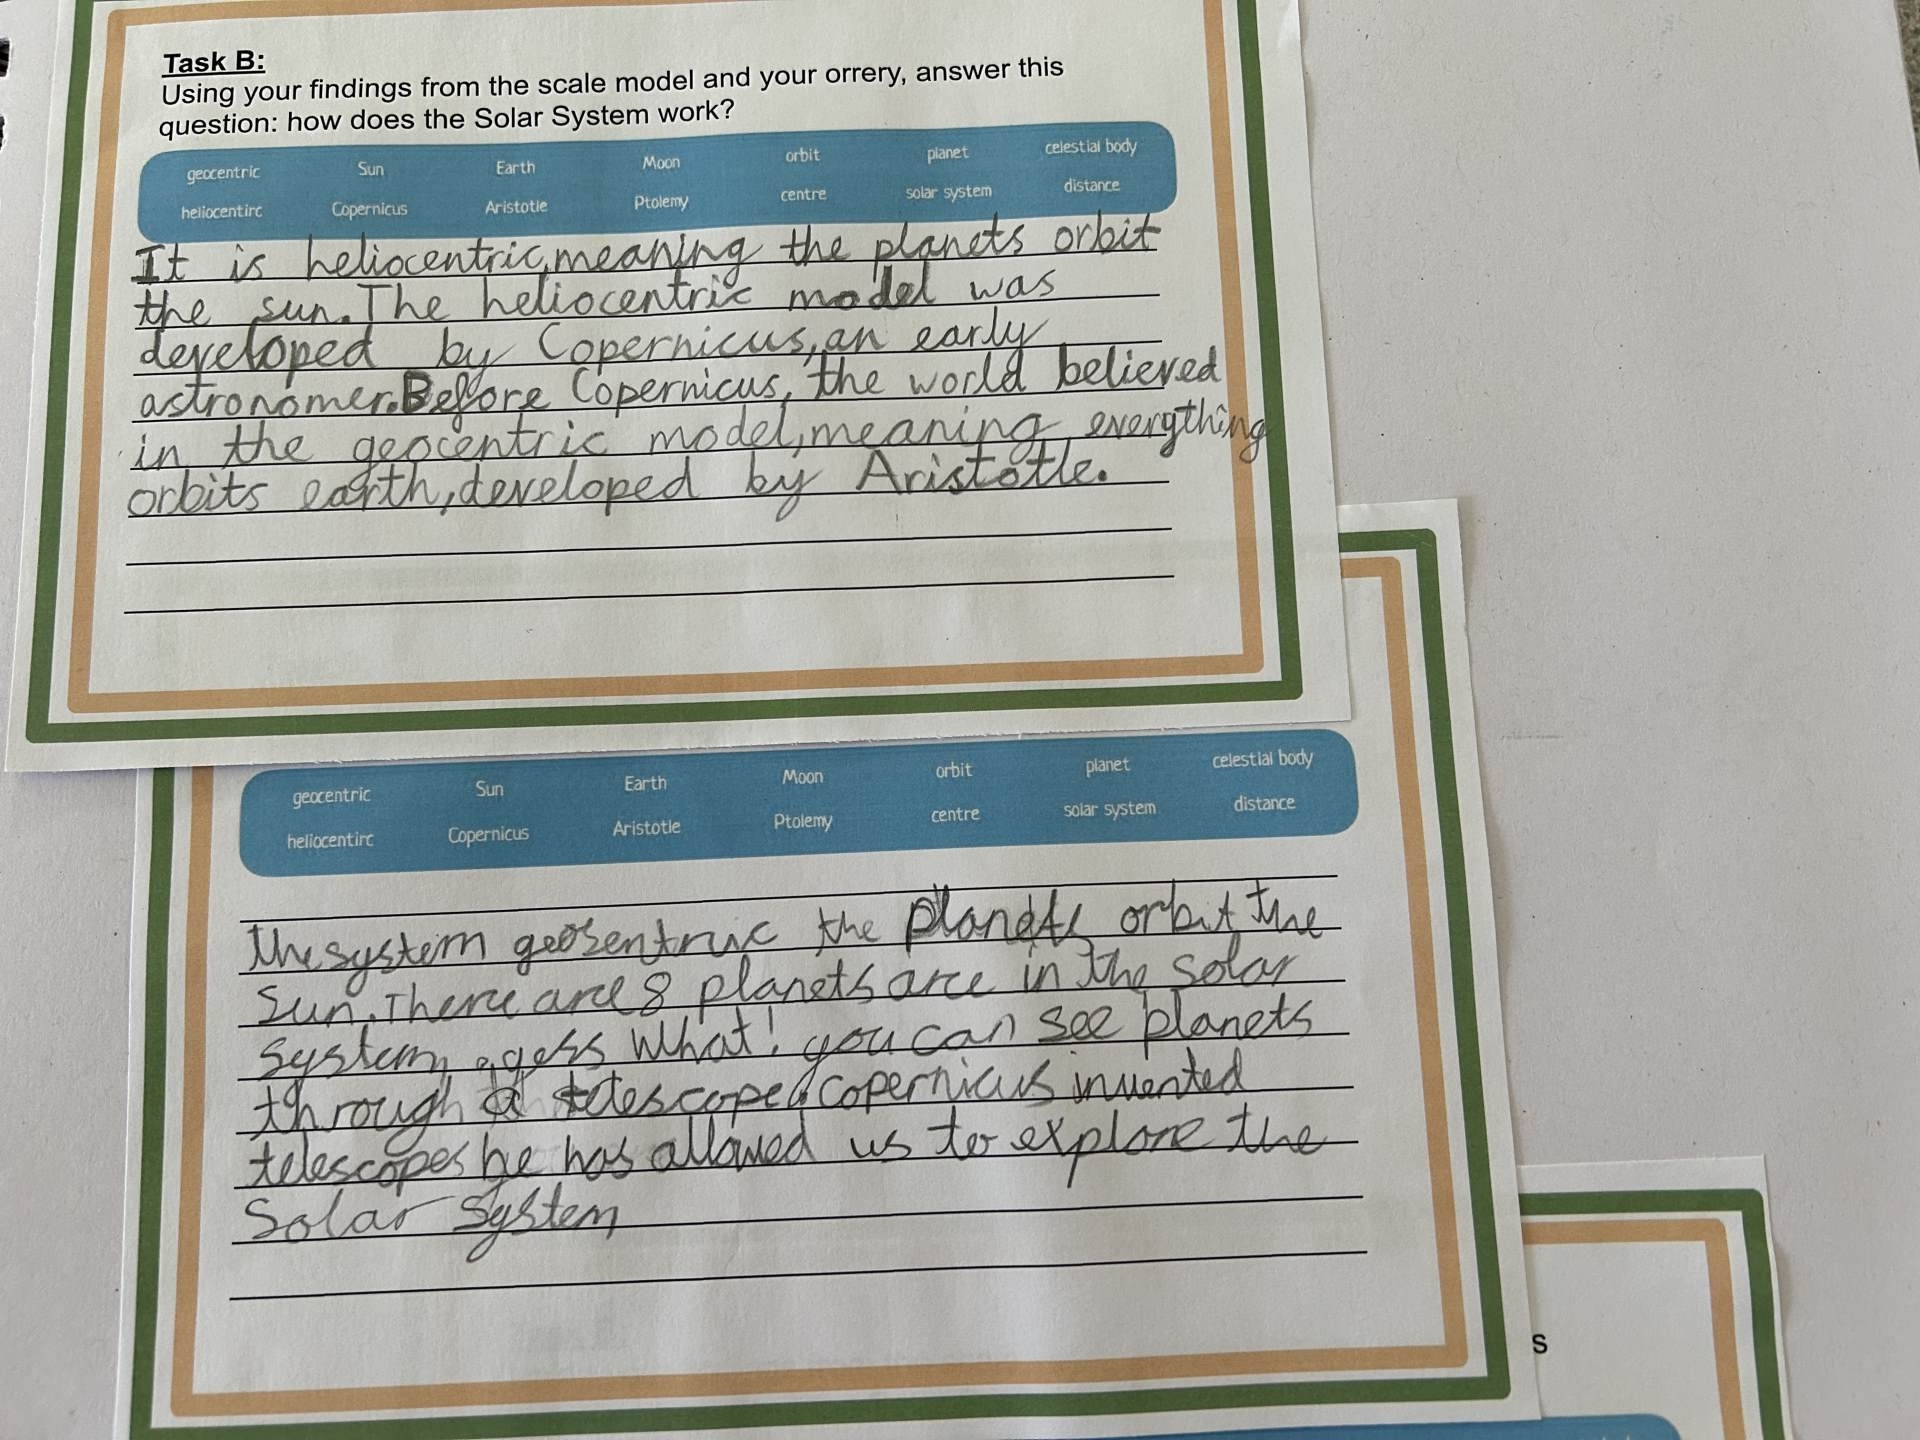 Task B:
Using your findings from the scale model and your orrery, answer this
question: how does the Solar System work?
geocentric Sun Earth Moon orbit planet celestial body
heliocentirc Copernicus Aristotle Ptolemy centre solar system distance
It is heliocentric, meaning the planets orbit
the sun. The heliocentric model was
developed by Copernicus, an early
astronomer. Before Copernicus, the world believed
in the geocentric model, meaning everything
orbits earth, developed by Aristotle.
geocentric Sun Earth Moon orbit planet celestial body
heliocentirc Copernicus Aristotle Ptolemy centre solar system distance
the system geosentric the orbit the
Sun. There are 8 planets are in the solar
System, gess What! you can see planets
through a telescope. Copernicus invented
telescopes he has allowed us to explore the
Solar System
s